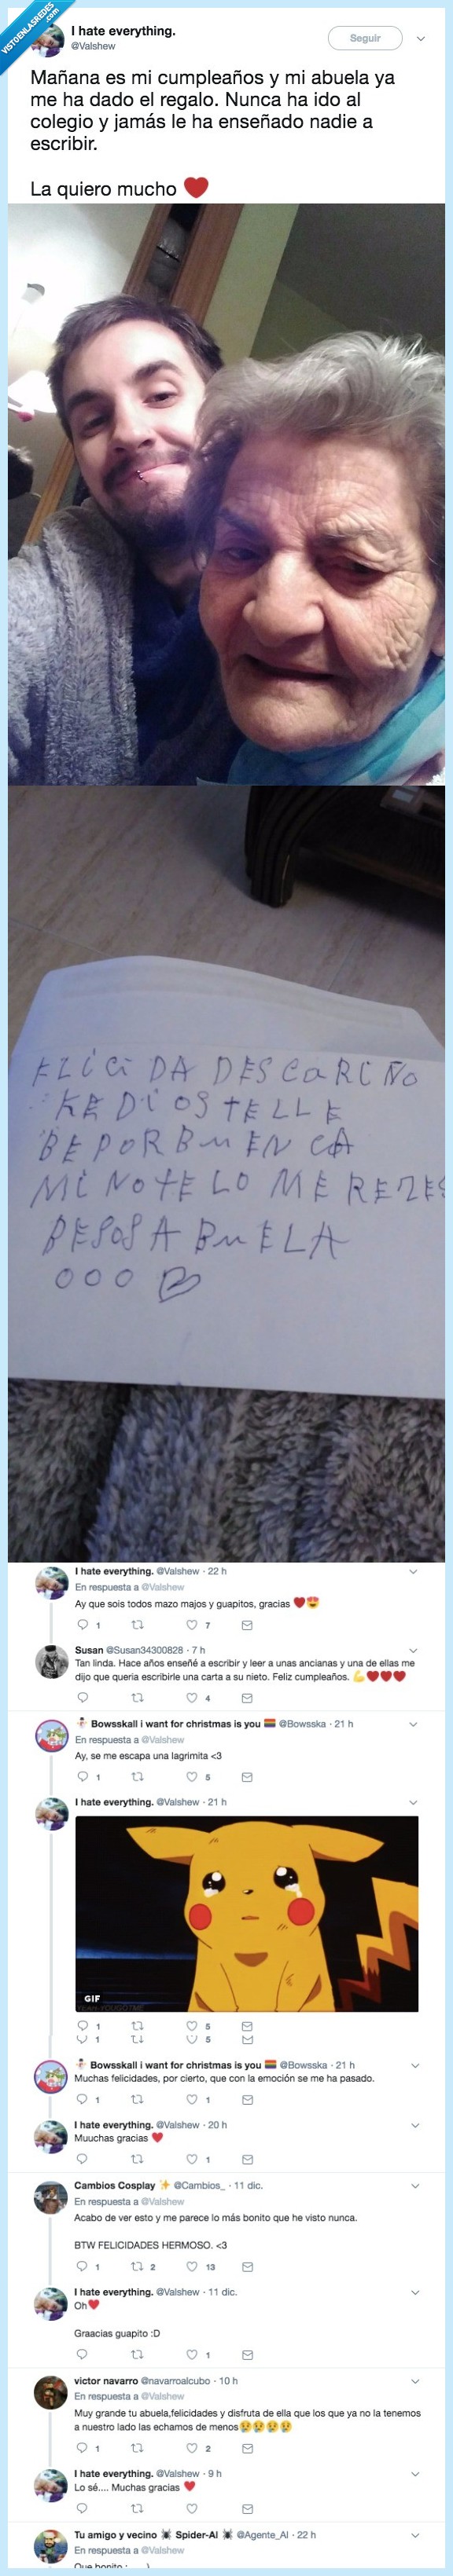 VISTOENLASREDES
.com
I hate everything.
@Valshew
Seguir
Mañana es mi cumpleaños y mi abuela ya
me ha dado el regalo. Nunca ha ido al
colegio y jamás le ha enseñado nadie a
escribir.
La quiero mucho ❤
ELiCi DA DESCARIÑO
KEDiOSTELLE
BEPORBuEN CA
MiNOTELO MEREZES
BESOSABuELA
OOO ♡
I hate everything. @Valshew · 22 h
En respuesta a @Valshew
Ay que sois todos mazo majos y guapitos, gracias ❤😍
1 7
Susan @Susan34300828 · 7 h
Tan linda. Hace años enseñé a escribir y leer a unas ancianas y una de ellas me
dijo que queria escribirle una carta a su nieto. Feliz cumpleaños. 💪❤❤❤
4
Bowsskall i want for christmas is you @Bowsska · 21 h
En respuesta a @Valshew
Ay, se me escapa una lagrimita <3
1 5
I hate everything. @Valshew · 21 h
GIF
1 5
1 5
Bowsskall i want for christmas is you @Bowsska · 21 h
Muchas felicidades, por cierto, que con la emoción se me ha pasado.
1 1
I hate everything. @Valshew · 20 h
Muuchas gracias ❤
1
Cambios Cosplay ✨ @Cambios_ · 11 dic.
En respuesta a @Valshew
Acabo de ver esto y me parece lo más bonito que he visto nunca.
BTW FELICIDADES HERMOSO. <3
1 2 13
I hate everything. @Valshew · 11 dic.
Oh❤
Graacias guapito :D
1
victor navarro @navarroalcubo · 10 h
En respuesta a @Valshew
Muy grande tu abuela,felicidades y disfruta de ella que los que ya no la tenemos
a nuestro lado las echamos de menos😢😢😢😢
1 2
I hate everything. @Valshew · 9 h
Lo sé.... Muchas gracias ❤
Tu amigo y vecino 🕷 Spider-Al 🕷 @Agente_Al · 22 h
En respuesta a @Valshew
Que bonito :